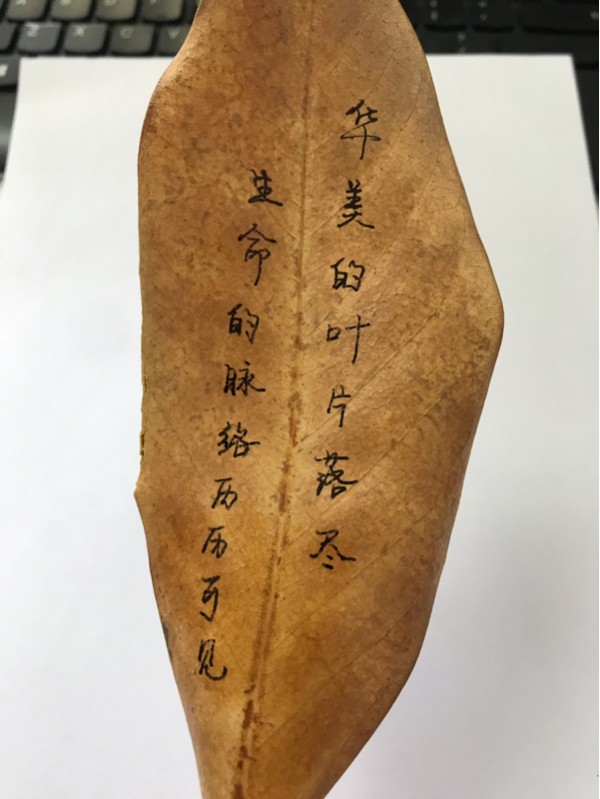 华美的叶片落尽
生命的脉络历历可见